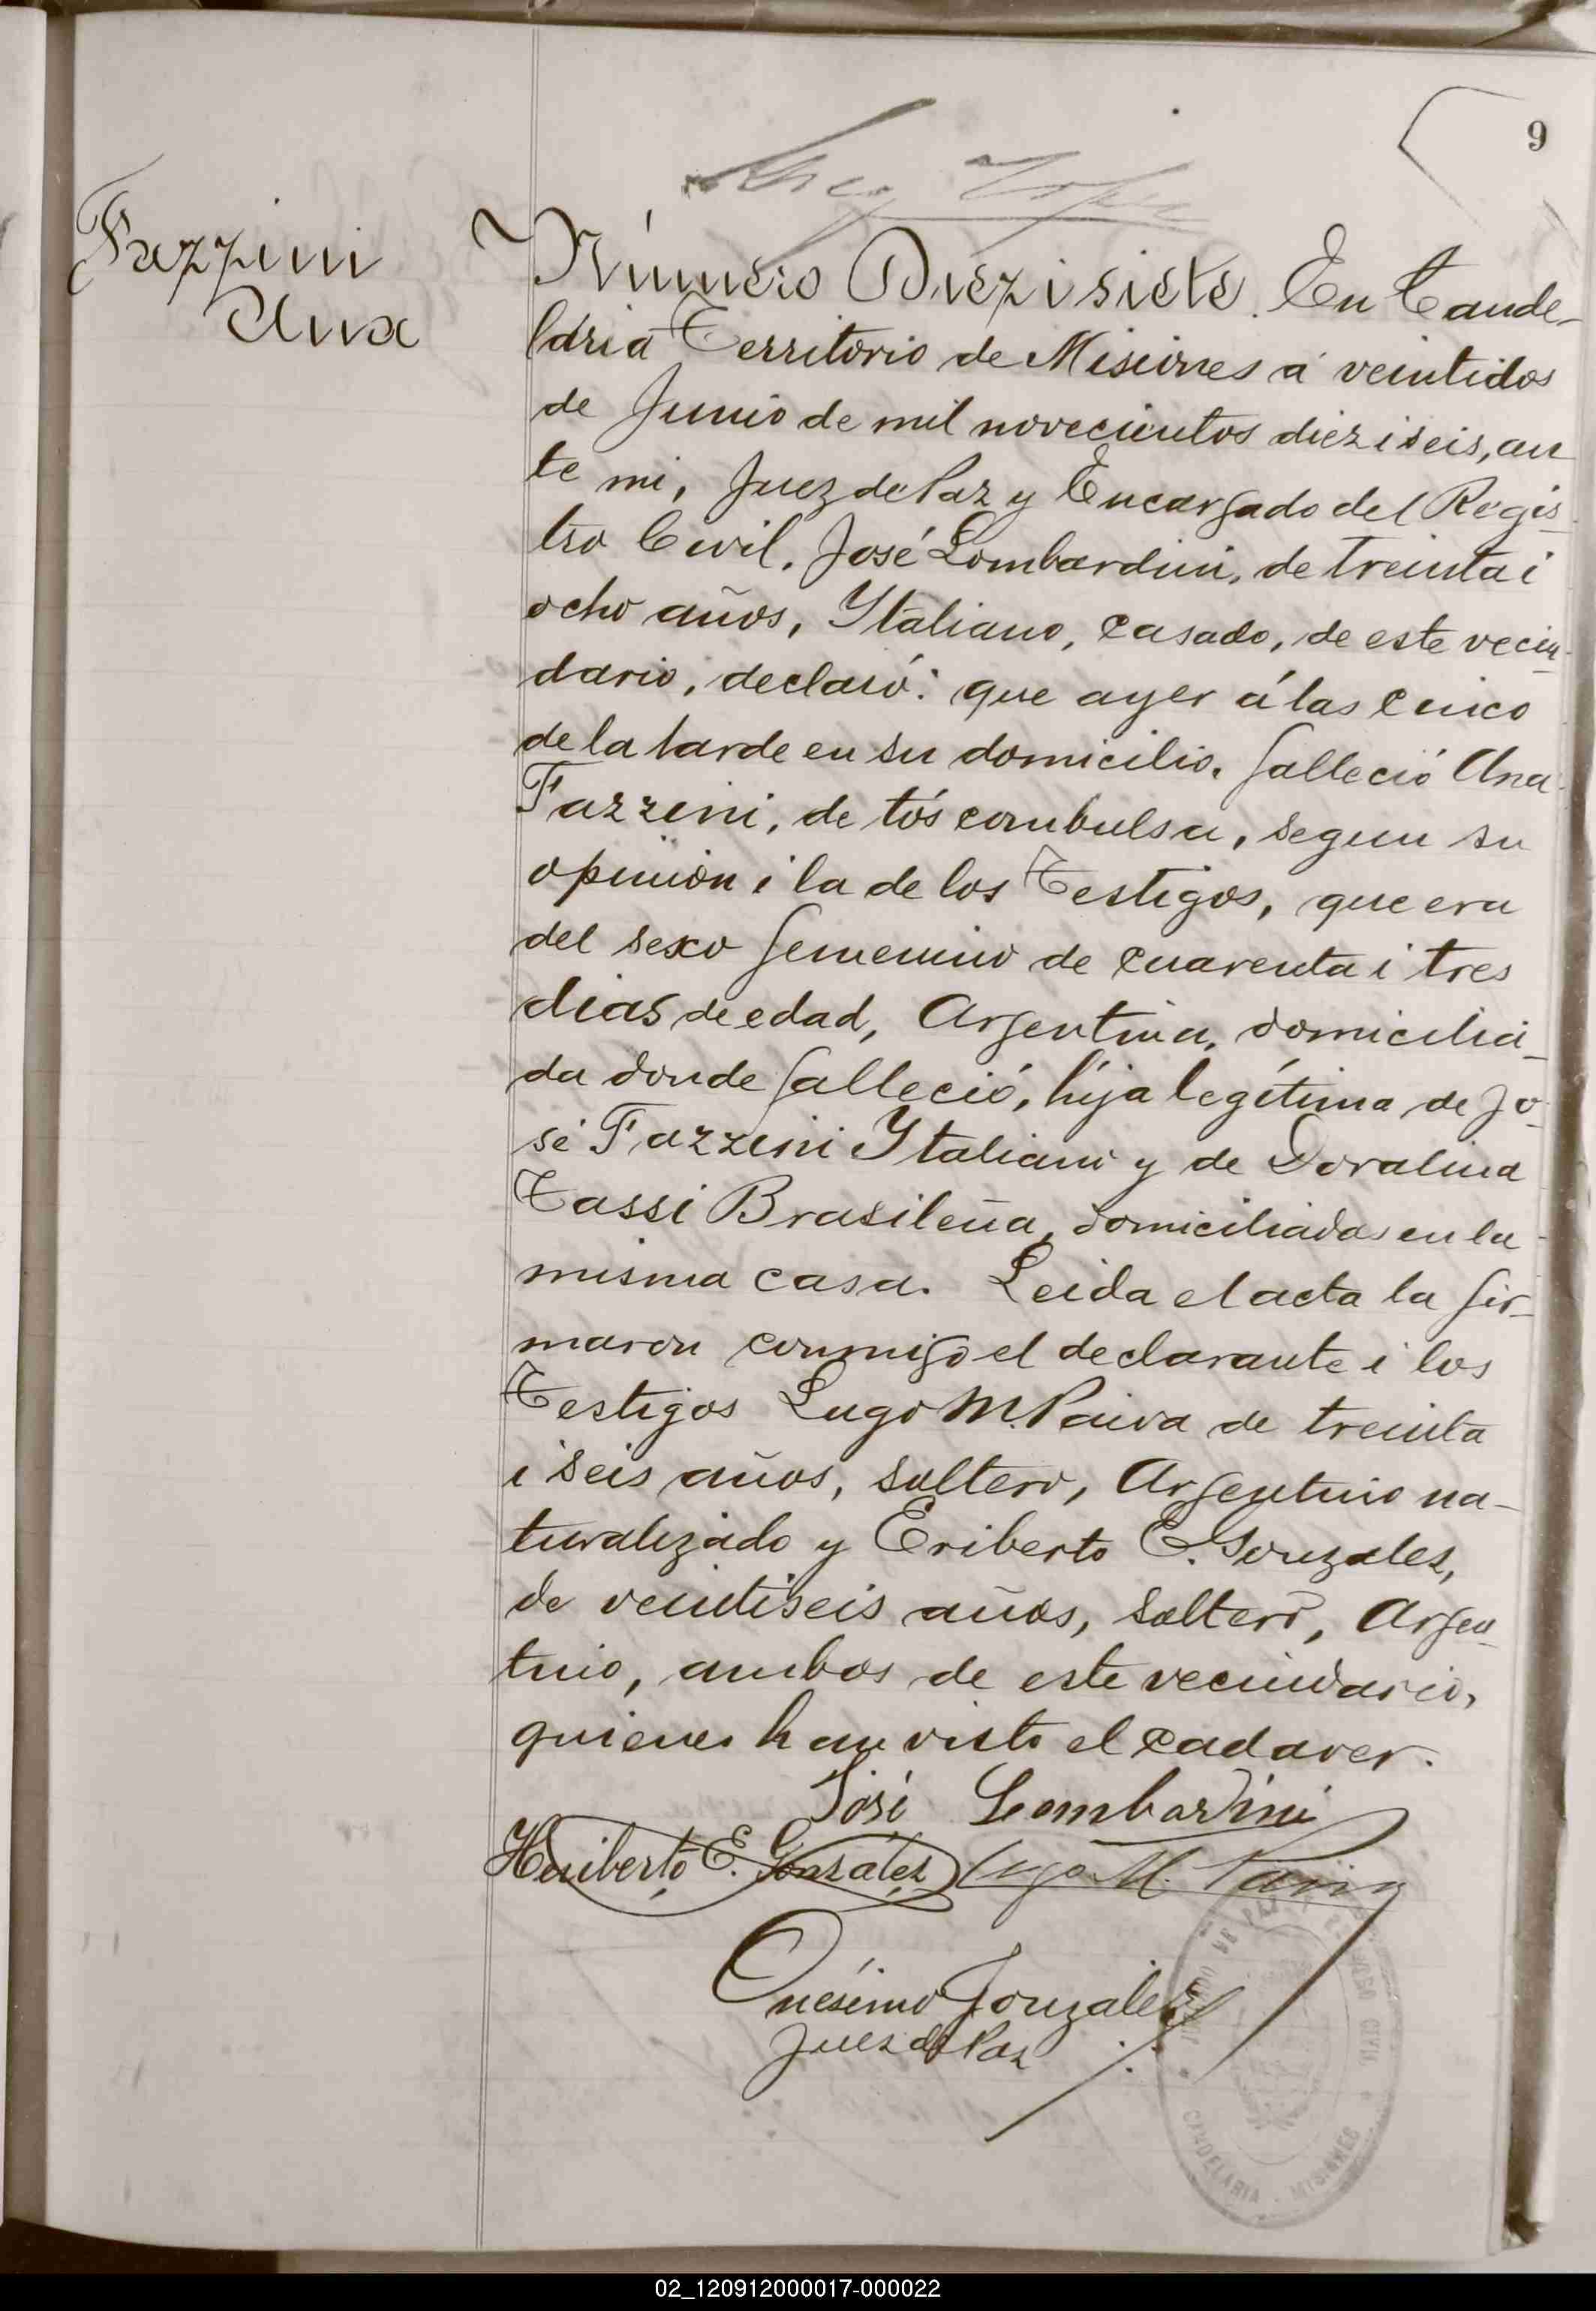 9
Fazzini
Ana
Número Diezisiete. En Cande-
laria Territorio de Misiones á veintidos
de Junio de mil novecientos dieziseis, an
te mi, Juez de Paz y Encargado del Regis-
tro Civil, José Lombardini, de treinta i
ocho años, Ytaliano, casado, de este vecin-
dario, declaró: que ayer á las cinco
de la tarde en su domicilio, falleció Ana
Fazzini, de tós combulsa, segun su
opinión i la de los Testigos, que era
del sexo femenino de cuarenta i tres
dias de edad, Argentina, domicilia-
da donde falleció, hija legítima de Jo-
sé Fazzini Ytaliano y de Doralina
Tassi Brasileña, domiciliados en la
misma casa. Leida el acta la fir-
maron conmigo el declarante i los
Testigos Lugo M. Paiva de treinta
i seis años, soltero, Argentino na-
turalizado y Eriberto E. Gonzales,
de veintiseis años, soltero, Argen-
tino, ambos de este vecindario,
quienes han visto el cadaver.
José Lombardini
Heriberto E. González Lugo M. Paiva
Onésimo Gonzalez
Juez de Paz
JUZGADO DE PAZ
CIVIL
CANDELARIA - MISIONES
02_120912000017-000022